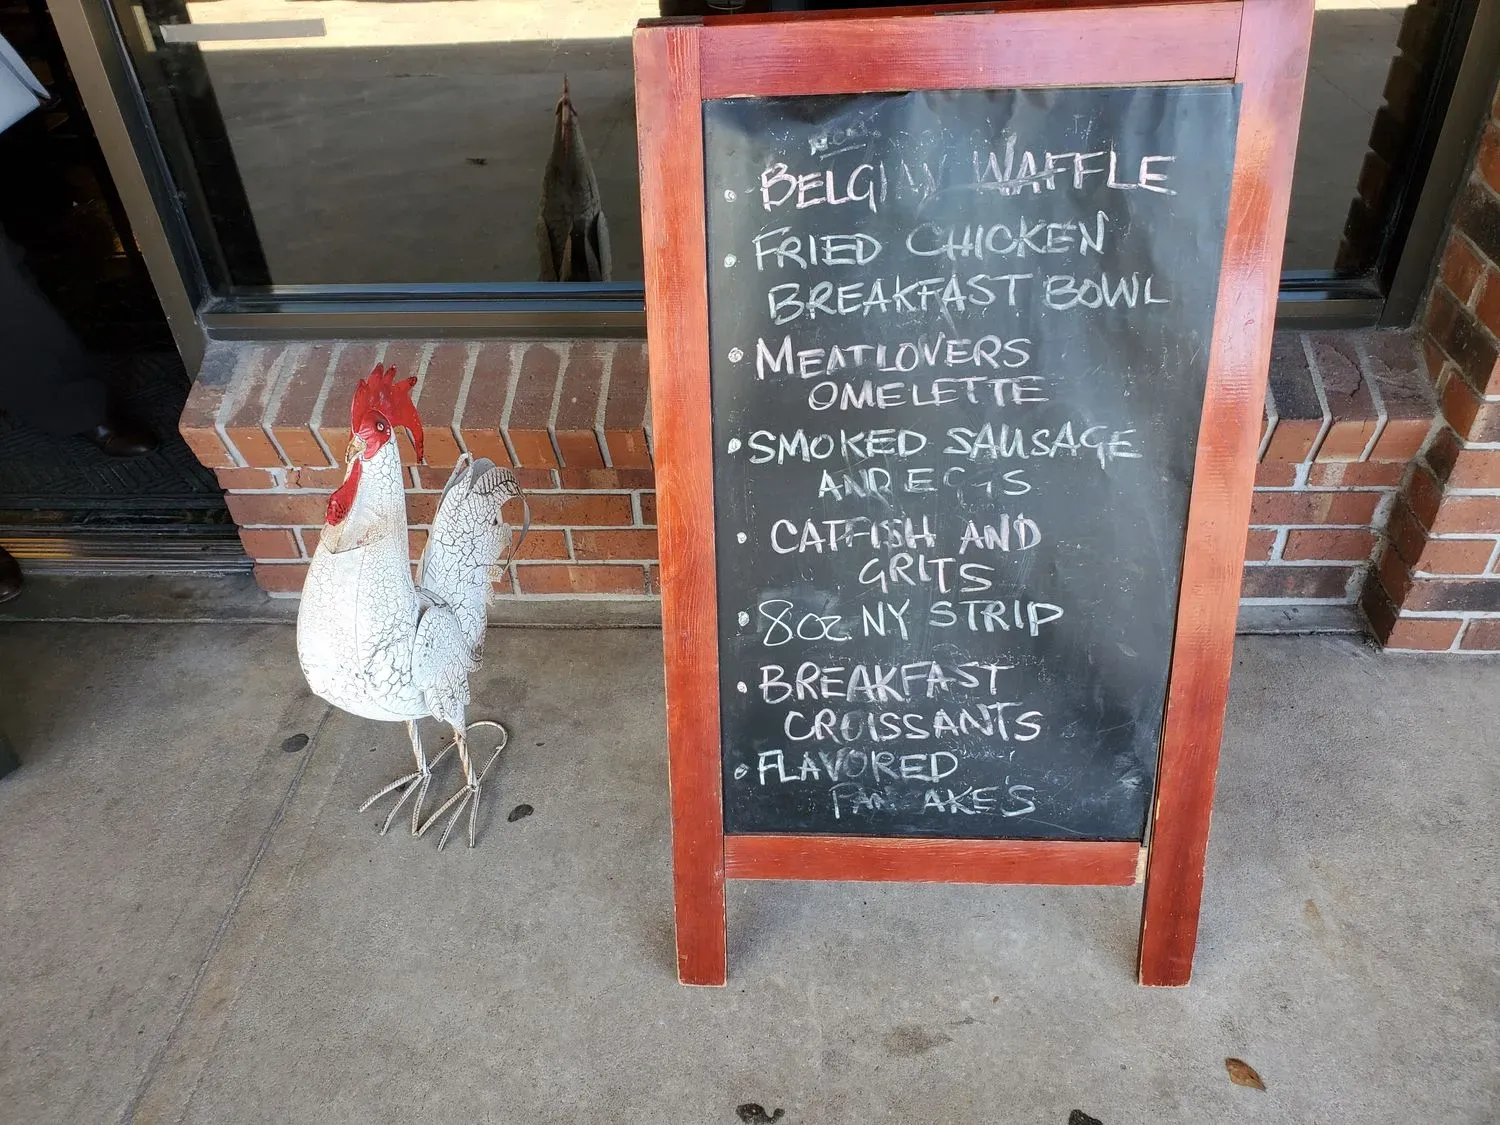 • BELGIAN WAFFLE
• FRIED CHICKEN
BREAKFAST BOWL
• MEATLOVERS
OMELETTE
• SMOKED SAUSAGE
AND EGGS
• CATFISH AND
GRITS
• 8oz NY STRIP
• BREAKFAST
CROISSANTS
• FLAVORED
PANCAKES